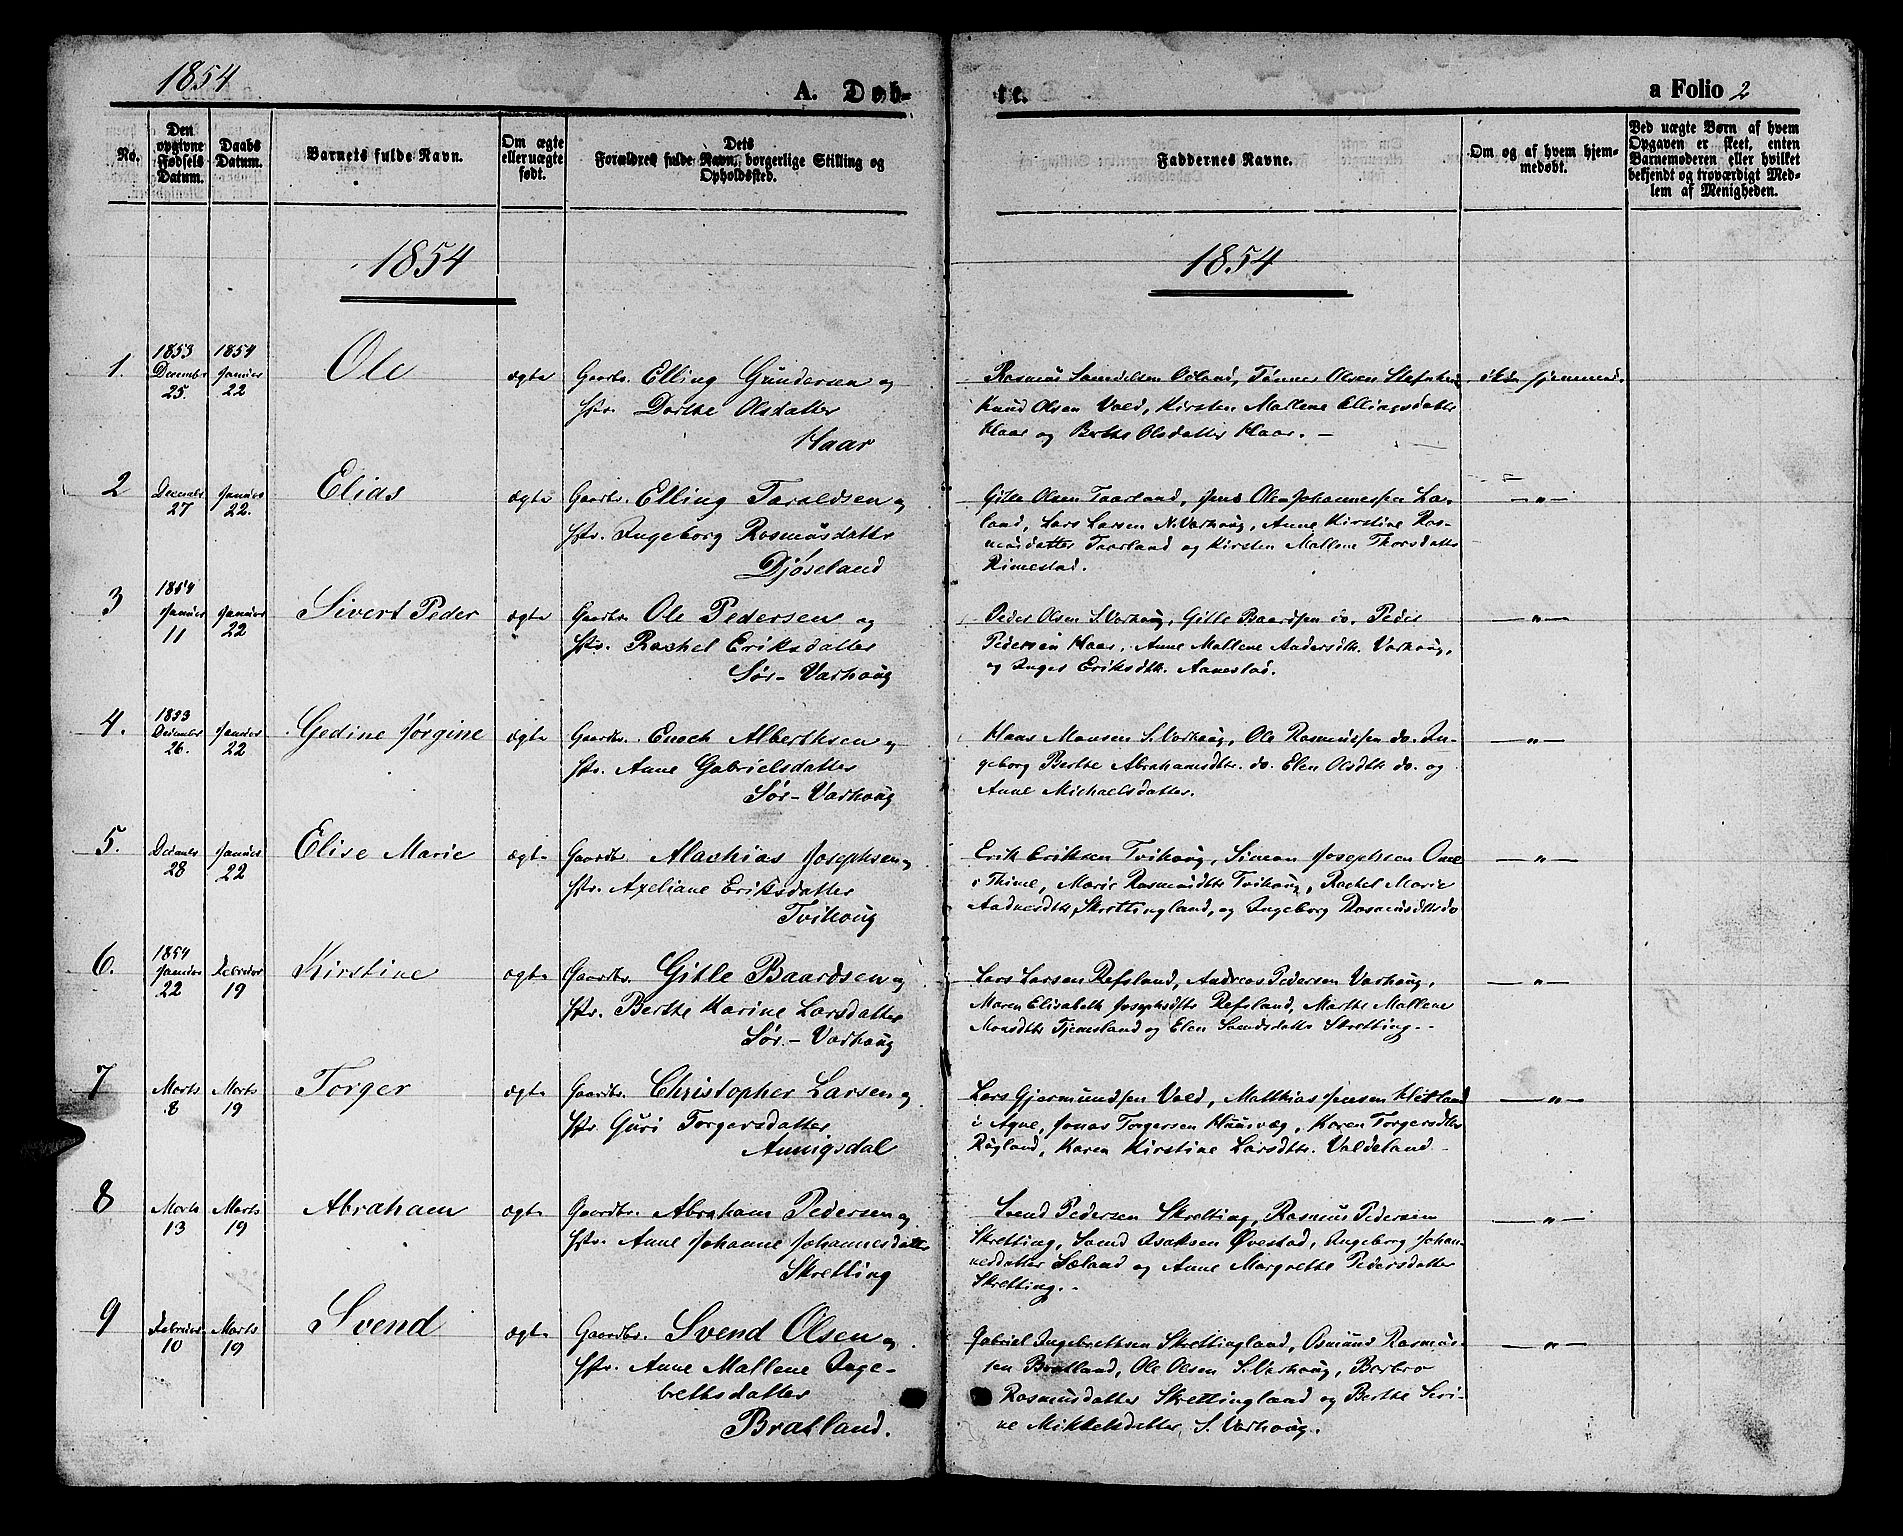 1854
A. Døb-
te.
a Folio 2
No.
Den
opgivne
Fødsels
Datum.
Daabs
Datum.
Barnets fulde Navn.
Om ægte
eller uægte
født.
Dets
Forældres fulde Navn, borgerlige Stilling og
Opholdssted.
Faddernes Navne.
Om og af hvem hjem-
medøbt.
Ved uægte Børn af hvem
Opgaven er skeet, enten
Barnemoderen eller hvilket
bekjendt og troværdigt Med-
lem af Menigheden.
1854
1854
1.
1853
December
25.
1854
Januar
22
Ole
ægte
Gaardbr. Elling Gundersen og
Hstr. Dorthe Olsdatter
Haar
Rasmus Samuelsen Odland, Tønnes Olsen
Knud Olsen Vold, Kirsten Mallene Ellingsdatter
Haar og Berthe Olsdatter Haar. —
ikke hjemmed.
2
Decembr
27
Januar
22.
Elias
ægte
Gaardbr. Elling Taraldsen og
Hstr. Ingeborg Rasmusdatter
Djøseland
Gitle Olsen Taarland, Ole Johannessen Las-
land, Lars Larsen N. Varhoug, Anne Kirstine Ras-
musdatter Taarland og Kirsten Mallene Thorsdatter
Rimestad.
— " —
3
1854
Januar
11
Januar
22
Sivert Peder
ægte
Gaardbr. Ole Pedersen og
Hstr. Rachel Eriksdatter
Sør-Varhoug
Peder Olsen S. Varhoug, Gitle Baardsen do. Peder
Pedersen Haar, Anne Mallene Andersdtr. Varhoug,
og Inger Eriksdtr. Aanestad.
— " —
4.
1853
December
26.
Januar
22
Gedine Jørgine
ægte
Gaardbr. Enoch Alberthsen og
Hstr. Anne Gabrielsdatter
Sør-Varhoug
Hans Monsen S. Varhoug, Ole Rasmussen do. In-
geborg Berthe Abrahamsdtr. do. Elen Olsdtr do. og
Anne Michaelsdatter.
— " —
5.
Decembr
28
Januar
22
Elise Marie
ægte
Gaardbr. Alachias Josephsen og
Hstr. Axeliane Eriksdatter
Tvihoug
Erik Eriksen Tvihoug, Simon Josephsen
i Thime, Marie Rasmusdtr Tvihoug, Rachel Marie
Aadnesdtr Skrettingland, og Ingeborg Rasmusdtr do
— " —
6.
1854
Januar
22
Februar
19
Kirstine
ægte
Gaardbr. Gitle Baardsen og
Hstr. Berthe Karine Larsdatter
Sør-Varhoug
Lars Larsen Refsland, Andreas Pedersen Varhoug,
Maren Elisabeth Josephsdtr Refsland, Marthe Mallene
Monsdtr Tjemsland og Elen Samdsdatter Skretting.
— " —
7
Marts
8
Marts
19
Torger
ægte
Gaardbr. Christopher Larsen og
Hstr. Guri Torgersdatter
Aunigsdal
Lars Gjermundsen Vold, Matthias Jensen Hetland
i Ogne, Jonas Torgersen, Karen Torgersdtr
Rugland, Karen Kirstine Larsdtr. Valdeland
— " —
8
Marts
13
Marts
19
Abraham
ægte
Gaardbr. Abraham Pedersen og
Hstr. Anne Johanne Johannesdatter
Skretting
Svend Pedersen Skretting, Rasmus Pedersen
Skretting, Samd Isaksen Øvestad, Ingeborg Johan-
nesdatter Sæland og Anne Margrethe Pedersdatter
Skretting.
— " —
9
Februar
10
Marts
19
Svend
ægte
Gaardbr. Svend Olsen og
Hstr. Anne Mallene Inge-
brethsdatter
Bratland.
Gabriel Ingebrethsen Skrettingland, Osmund Rasmus-
sen Bratland, Ole Olsen S. Varhoug, Barbro
Rasmusdatter Skrettingland og Berthe Seri-
ne Mikkelsdatter, S. Varhoug.
— " —